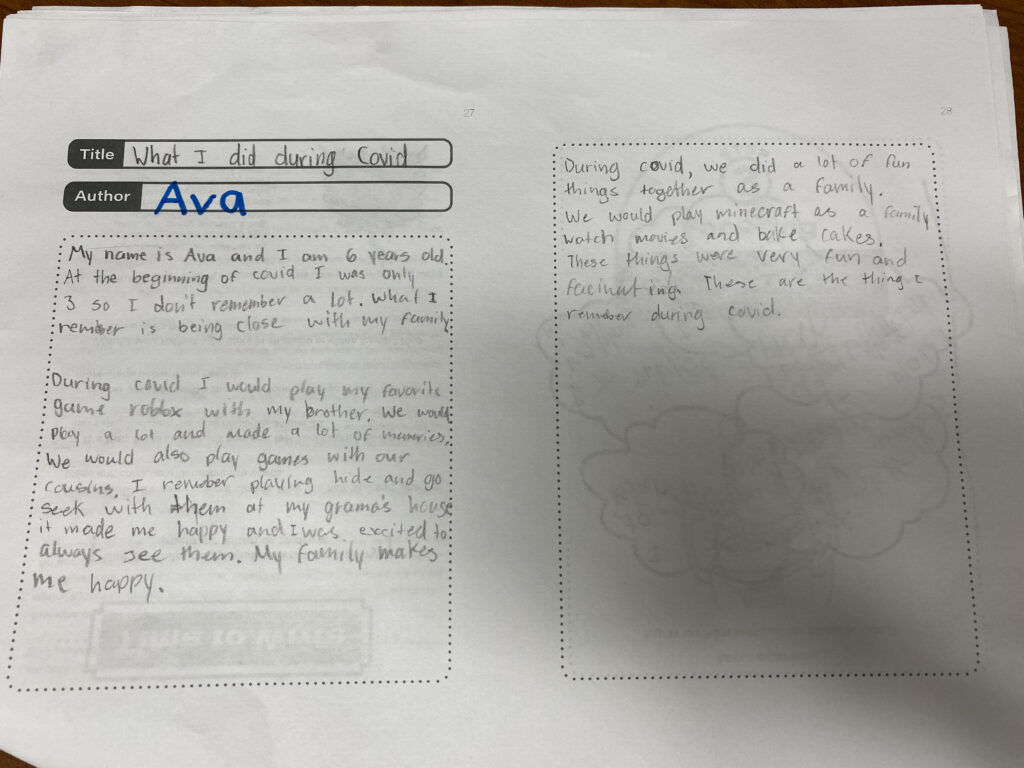 27
Title What I did during Covid
Author Ava
My name is Ava and I am 6 years old.
At the beginning of covid I was only
3 so I don't remember a lot. What I
rember is being close with my family
During covid I would play my favorite
game roblox with my brother. We would
play a lot and made a lot of memories.
We would also play games with our
cousins. I rember playing hide and go
seek with them at my grama's house
it made me happy and I was excited to
always see them. My family makes
me happy.
28
During covid, we did a lot of fun
things together as a family.
We would play minecraft as a family
watch movies and bake cakes.
These things were very fun and
facinating. These are the thing I
remember during covid.